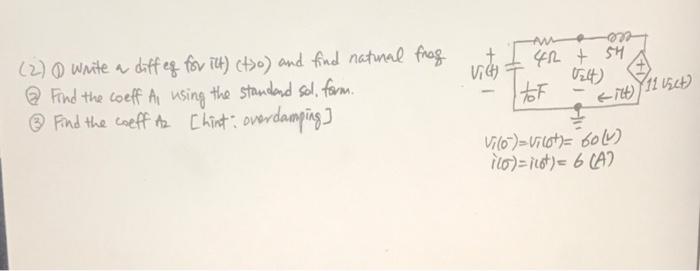 (2) ① Write a diff eq for i(t) (t>0) and find natural freq
② Find the coeff A₁ using the standard sol. form.
③ Find the coeff A₂ [hint: overdamping]
+
V₁(t)
-
4Ω
1/10 F
+
V₂(t)
-
5H
← i(t)
+
-
11 V₂(t)
V₁(0⁻)=V₁(0⁺)= 60(V)
i(0⁻)=i(0⁺)= 6 (A)